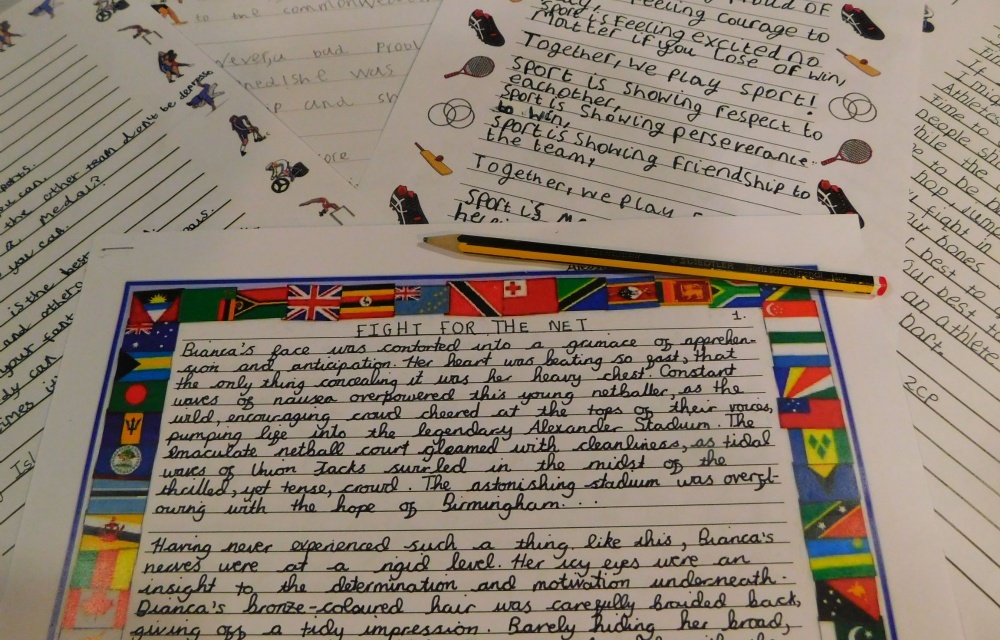 to the commonwe
ever, a bad prob
ned! She was
ip and sh
ore
sports.
you can.
the other team don't be terrible
a medal?
you can
is the best
and other
your fast
proud of
feeling courage to
Sport is feeling excited no
matter if you lose or win,
Together, we play sport!
Sport is showing respect to
eachother,
Sport is showing perseverance
to win,
Sport is showing friendship to
the team,
Together, we play
Sport is
people sh
time to
while the
to be b
hop, jump
fight in
ur bones
best to
our best to
an athlete
part.
2CP
STAEDTLER
1.
FIGHT FOR THE NET
Bianca's face was contorted into a grimace of apprehen-
sion and anticipation. Her heart was beating so fast, that
the only thing concealing it was her heavy chest. Constant
waves of nausea overpowered this young netballer, as the
wild, encouraging crowd cheered at the tops of their voices,
pumping life into the legendary Alexander Stadium. The
imaculate netball court gleamed with cleanliness, as tidal
waves of Union Jacks swirled in the midst of the
thrilled, yet tense, crowd. The astonishing stadium was overfl-
owing with the hope of Birmingham...
Having never experienced such a thing like this, Bianca's
nerves were at a rigid level. Her icy eyes were an
insight to the determination and motivation underneath.
Bianca's bronze-coloured hair was carefully braided back,
giving off a tidy impression. Barely hiding her broad,